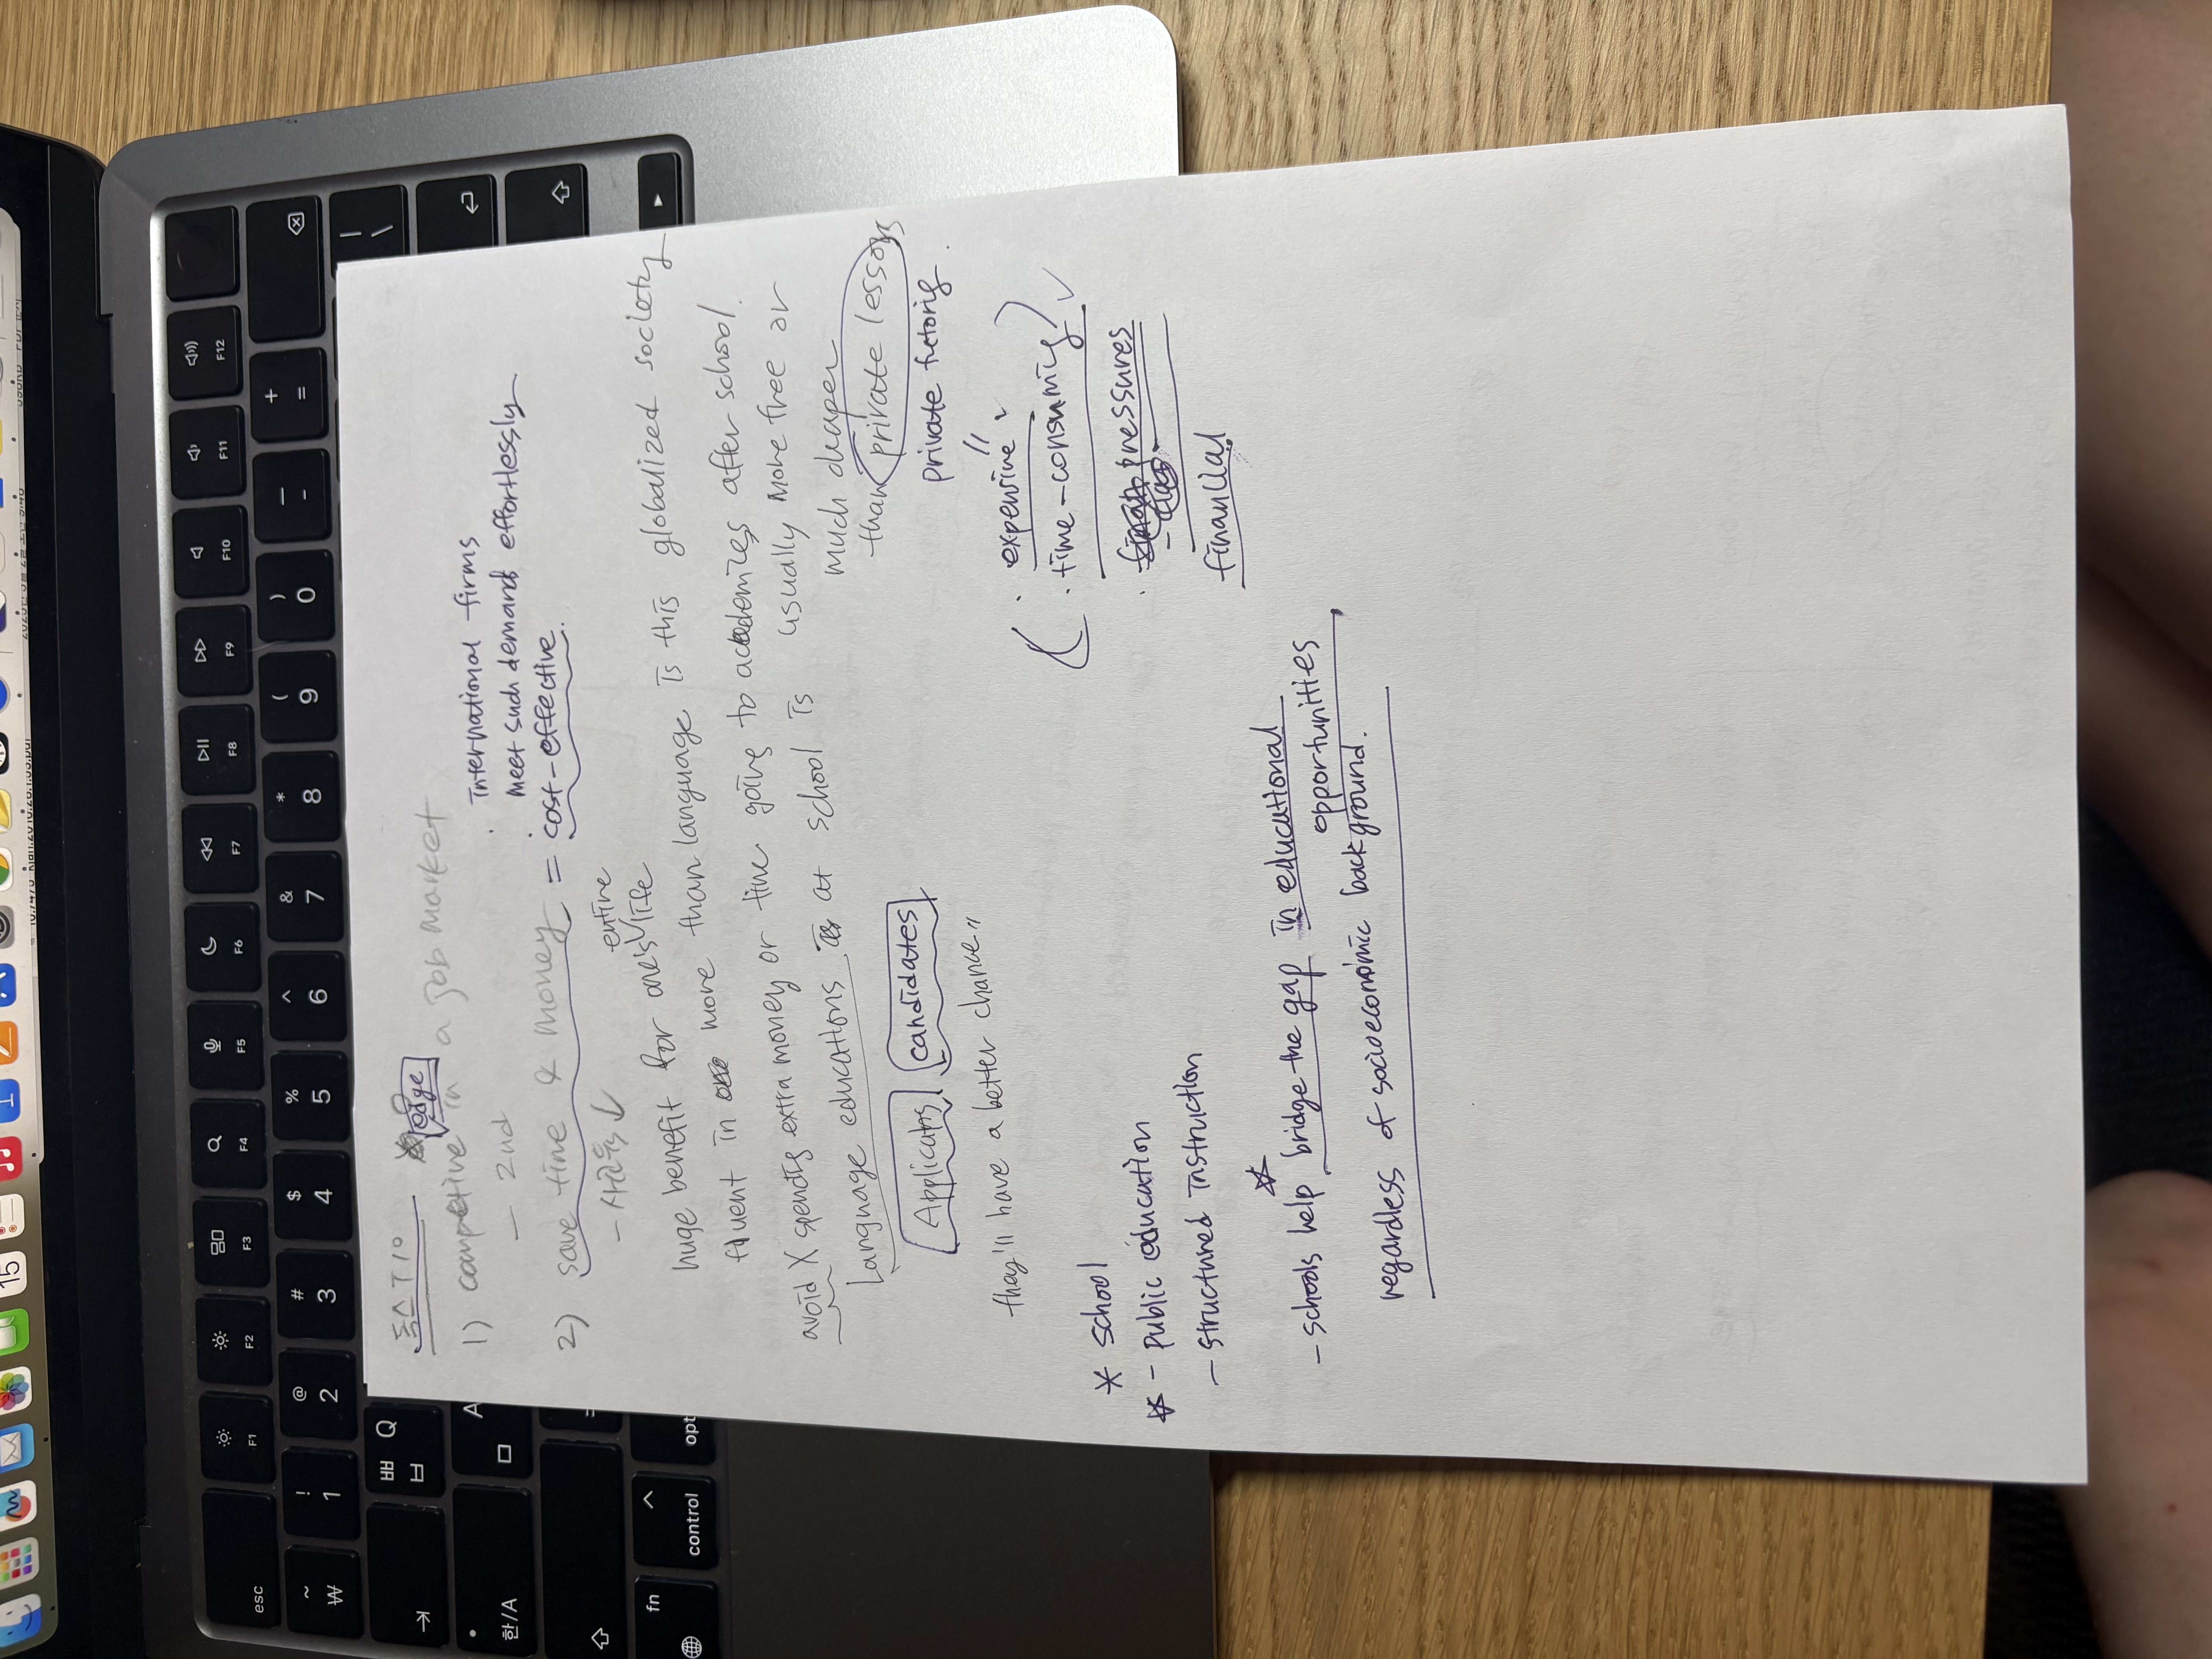 톡스 T10
1) competitive edge in a job market
- 2nd
· International firms
· meet such demand effortlessly
2) save time & money = cost-effective.
- 사교육↓
entire
huge benefit for one's life
fluent in more than language is this globalized society
avoid X spends extra money or time going to academies after school.
Language educations at school is usually more free or
much cheaper
than private lessons
private tutoring.
Applicants candidates
they'll have a better chance"
· expensive
· time-consuming
· pressures
financial
* School
☆ - Public education
- structured instruction
- schools help bridge the gap in educational
opportunities,
regardless of socioeconomic background.
esc
F1
F2
F3
F4
F5
F6
F7
F8
F9
F10
F11
F12
~ ₩
! 1
@ 2
# 3
$ 4
% 5
^ 6
& 7
* 8
( 9
) 0
_ -
+ =
ㅃ Q
ㅂ
| \
한/A
A
ㅁ
fn
control
opt